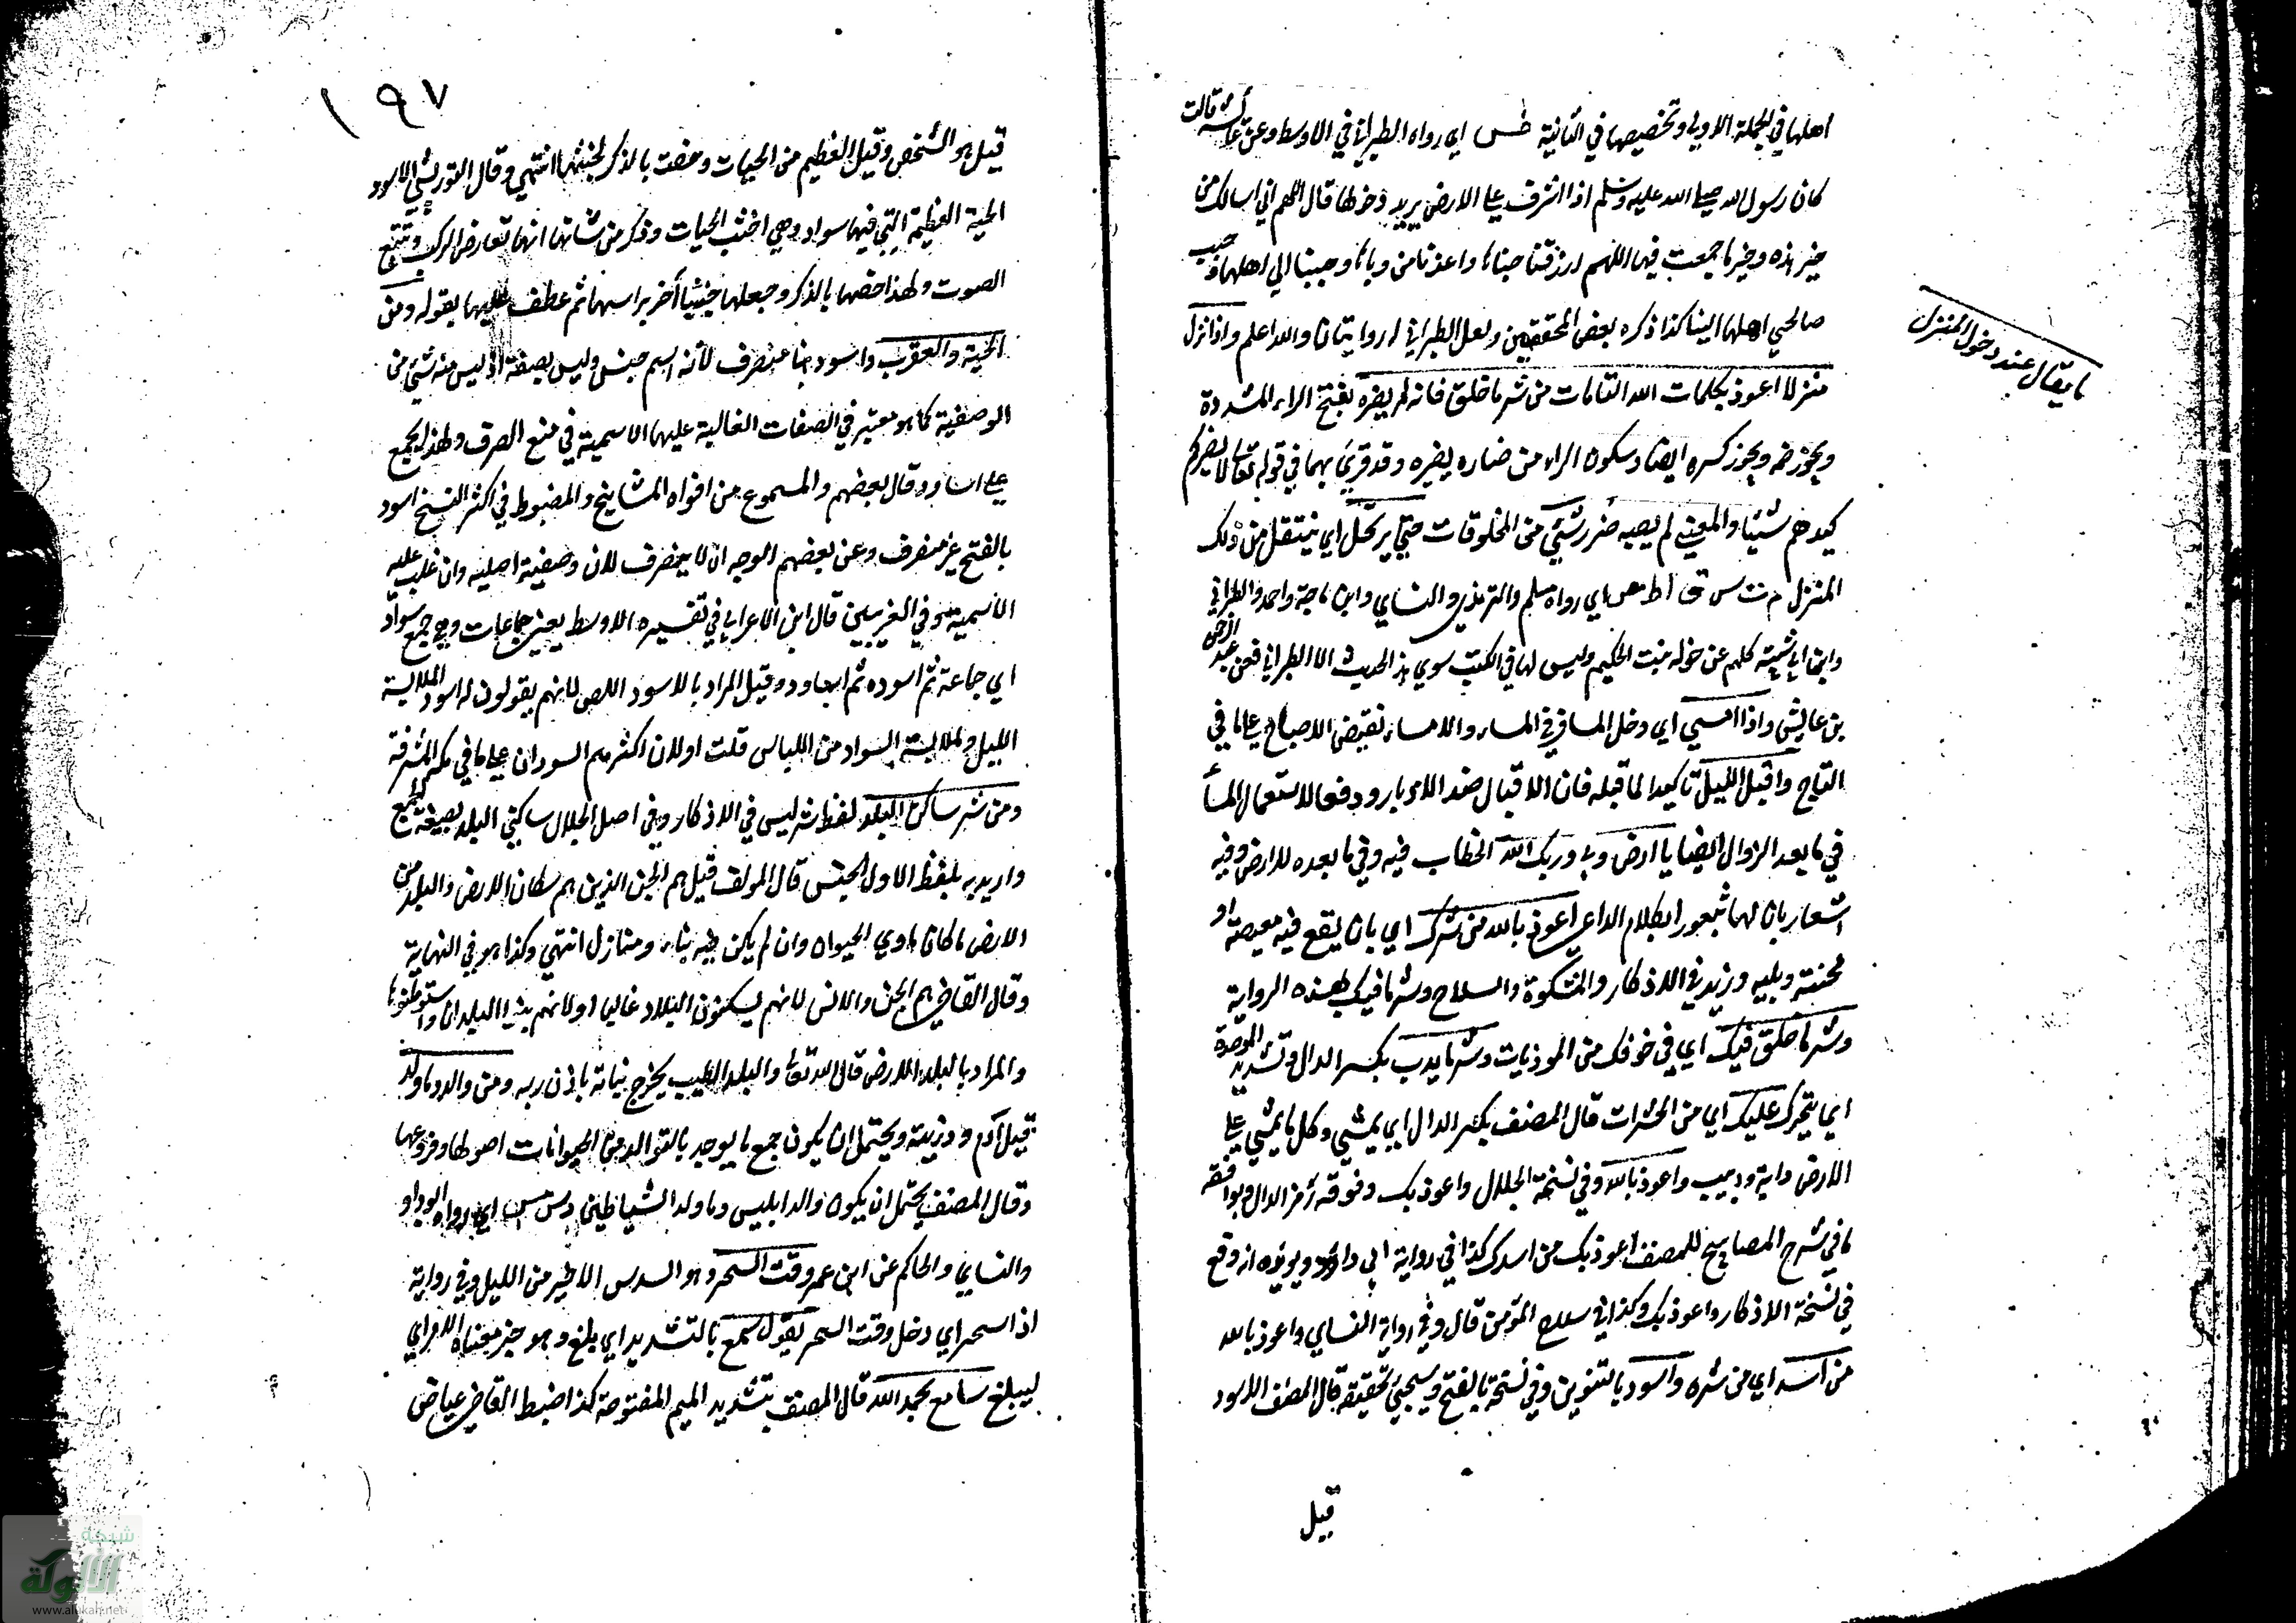 اهلها في الجملة الاولى وتخصيصها في الثانية طس اي رواه الطبراني في الاوسط وعن عائشة قالت
كان رسول الله صلى الله عليه وسلم اذا اشرف على الارض يريد دخولها قال اللهم اني اسالك من
خير هذه وخير ما جمعت فيها اللهم ارزقنا حياها واعذنا من وباها وحببنا الى اهلها وحبب
صالحي اهلها الينا كذا ذكره بعض المحققين ولعل للطبراني روايتان والله اعلم واذا نزل
منزلا اعوذ بكلمات الله التامات من شر ما خلق فانه لم يضره بفتح الراء المشددة
ويجوز ضمه ويجوز كسره ايضا وسكون الراء من ضاره يضيره وقد قرئ بهما في قوله تعالى لا يضركم
كيدهم شيئا والمعنى لم يصبه ضرر شئ من المخلوقات حتى يرتحل اي ينتقل من ذلك
المنزل م ت س ق ا ط مص اي رواه مسلم والترمذي والنساي وابن ماجة واحمد والطبراني
وابن ابي شيبة كلهم عن خولة بنت الحكيم وليس لها في الكتب سوى هذا الحديث الا الطبراني فعن عبد الرحمن
بن عايش واذا امسى اي دخل المسافر في المساء والامساء نقيض الاصباح على ما في
التاج واقبل الليل تاكيد لما قبله فان الاقبال ضد الادبار ودفعا لاستعمال المسأ
في ما بعد الزوال ايضا يا ارض ربي وربك الله الخطاب فيه وفي ما بعده للارض وفيه
اشعار بان لها شعورا بكلام الداعي اعوذ بالله من شرك اي بان يقع فيه معصية او
محنة وبلية وزيد في الاذكار والمشكوة والسلاح وشر ما فيك لهذه الرواية
وشر ما خلق فيك اي في جوفك من الموذيات وشر ما يدب بكسر الدال وتشديد الموحدة
اي يتحرك عليك اي من الحشرات قال المصنف بكسر الدال اي يمشي وكل ما يمشي على
الارض دابة ودبيب واعوذ بالله وفي نسخة الجلال واعوذ بك وفوقه رمز الدال ويوافقه
ما في شرح المصابيح للمصنف اعوذ بك من اسد كذا في رواية ابي داود ويويده انه وقع
في نسخة الاذكار واعوذ بك وكذا في سلاح المؤمن قال وفي رواية النساي واعوذ بالله
من اسد اي من شره واسود بالتنوين وفي نسخة بالفتح وسيجئ تحقيقه قال المصنف الاسود
قيل
ما يقال عند دخول المنزل
١٩٧
قيل هو الشخص وقيل العظيم من الحيات وخصت بالذكر لخبثها انتهى وقال التوربشتي الاسود
الحية العظيمة التي فيها سواد وهي اخبث الحيات وذكر من شانها انها تعارض الركب وتتبع
الصوت ولهذا خصها بالذكر وجعلها جنسا آخر براسها ثم عطف عليها بقوله ومن
الحية والعقرب واسود هنا منصرف لأنه اسم جنس وليس بصفة اذ ليس منه شئ من
الوصفية كما هو معتبر في الصفات الغالبة عليها الاسمية في منع الصرف ولهذا يجمع
على اساود وقال بعضهم والمسموع من افواه المشايخ والمضبوط في اكثر النسخ اسود
بالفتح غير منصرف وعن بعضهم الوجه ان لا ينصرف لان وصفيته اصلية وان غلب عليه
الاسمية وفي الغريبين قال ابن الاعرابي في تفسيره الاوسط يعني جماعات وهي جمع سواد
اي جماعة ثم اسوده ثم اساود وقيل المراد بالاسود اللص لانهم يقولون له اسود لملابسة
الليل ولملابسة السواد من اللباس قلت او لان اكثرهم السودان على ما في مكة المشرفة
ومن شر ساكن البلد لفظ شر ليس في الاذكار وفي اصل الجلال ساكني البلد بصيغة الجمع
واريد به بلفظ الاول الجنس قال المولف قيل هم الجن الذين هم سكان الارض والبلد من
الارض ما كان ماوى الحيوان وان لم يكن فيه بناء ومنازل انتهى وكذا هو في النهاية
وقال القاضي هم الجن والانس لانهم يسكنون البلاد غالبا او لانهم بنوا البلدان واستوطنوها
والمراد بالبلد الارض قال الله تعالى والبلد الطيب يخرج نباته باذن ربه ومن والد وما ولد
قيل آدم وذريته ويحتمل ان يكون جمع ما يوجد بالتوالد من الحيوانات اصولها وفروعها
وقال المصنف يحتمل ان يكون والد ابليس وما ولد الشياطين د س مس اي رواه ابو داود
والنساي والحاكم عن ابن عمر وقت السحر وهو السدس الاخير من الليل وفي رواية
اذا اسحر اي دخل وقت السحر يقول سمع بالتشديد اي بلغ وهو خبر معناه الامر اي
ليبلغ سامع بحمد الله قال المصنف بتشديد الميم المفتوحة كذا ضبط القاضي عياض
شبكة
الألوكة
www.alukah.net